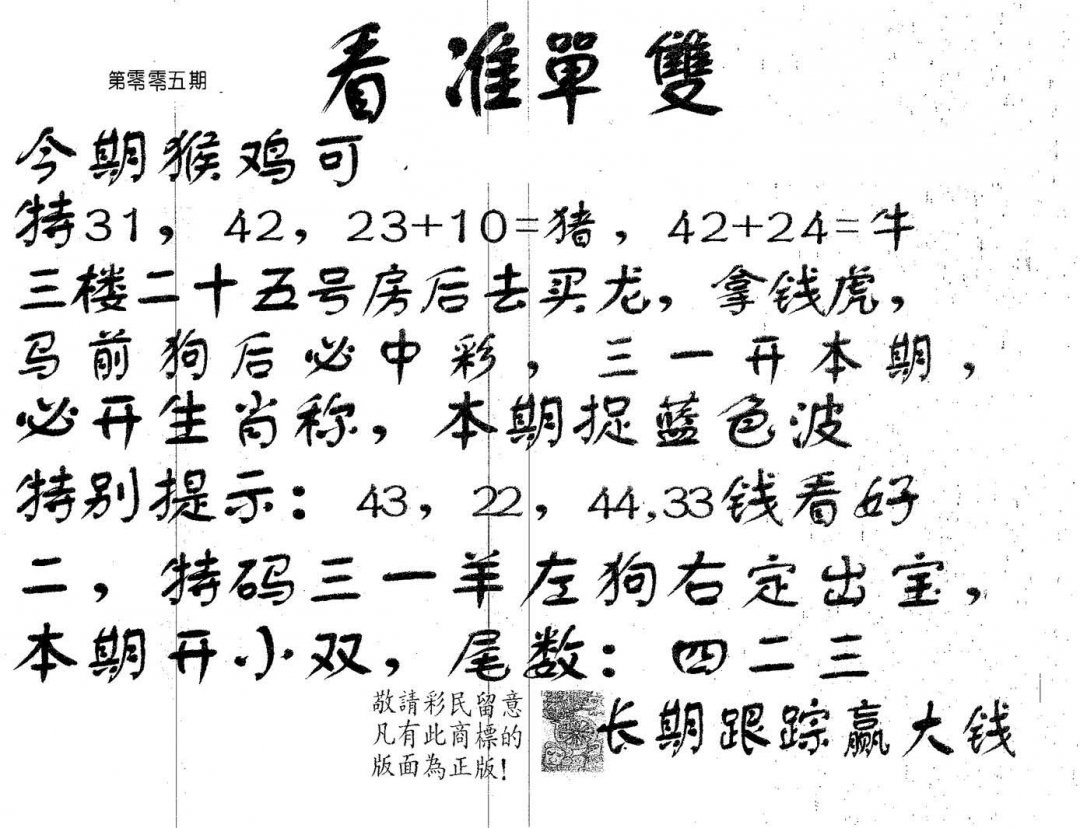 看准單雙
第零零五期
今期猴鸡可
特31，42，23+10=猪，42+24=牛
三楼二十五号房后去买龙，拿钱虎，
马前狗后必中彩，三一开本期，
必开生肖称，本期捉蓝色波
特别提示：43，22，44,33钱看好
二，特码三一羊左狗右定出宝，
本期开小双，尾数：四二三
敬請彩民留意
凡有此商標的
版面為正版！
长期跟踪赢大钱